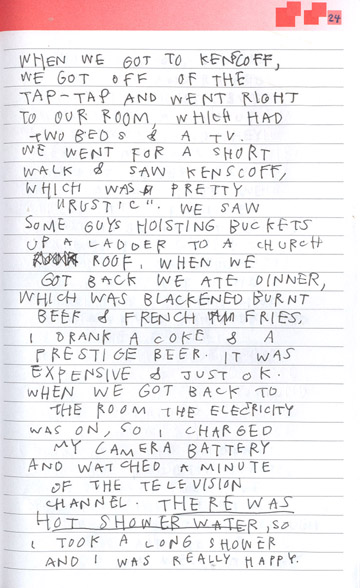 24
WHEN WE GOT TO KENSCOFF,
WE GOT OFF OF THE
TAP-TAP AND WENT RIGHT
TO OUR ROOM, WHICH HAD
TWO BEDS & A TV.
WE WENT FOR A SHORT
WALK & SAW KENSCOFF,
WHICH WAS PRETTY
"RUSTIC". WE SAW
SOME GUYS HOISTING BUCKETS
UP A LADDER TO A CHURCH
ROOF. WHEN WE
GOT BACK WE ATE DINNER,
WHICH WAS BLACKENED BURNT
BEEF & FRENCH FRIES.
I DRANK A COKE & A
PRESTIGE BEER. IT WAS
EXPENSIVE & JUST OK.
WHEN WE GOT BACK TO
THE ROOM THE ELECTRICITY
WAS ON, SO I CHARGED
MY CAMERA BATTERY
AND WATCHED A MINUTE
OF THE TELEVISION
CHANNEL. THERE WAS
HOT SHOWER WATER, SO
I TOOK A LONG SHOWER
AND I WAS REALLY HAPPY.